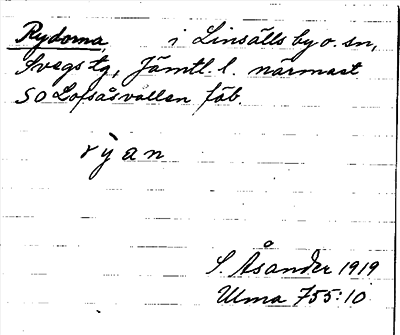 Rydorna, i Linsälls by o. sn,
Svegs tg, Jämtl. l. närmast
SO Lofsåsvallen fäb.
rỳan
S. Åsander 1919
Ulma 755:10